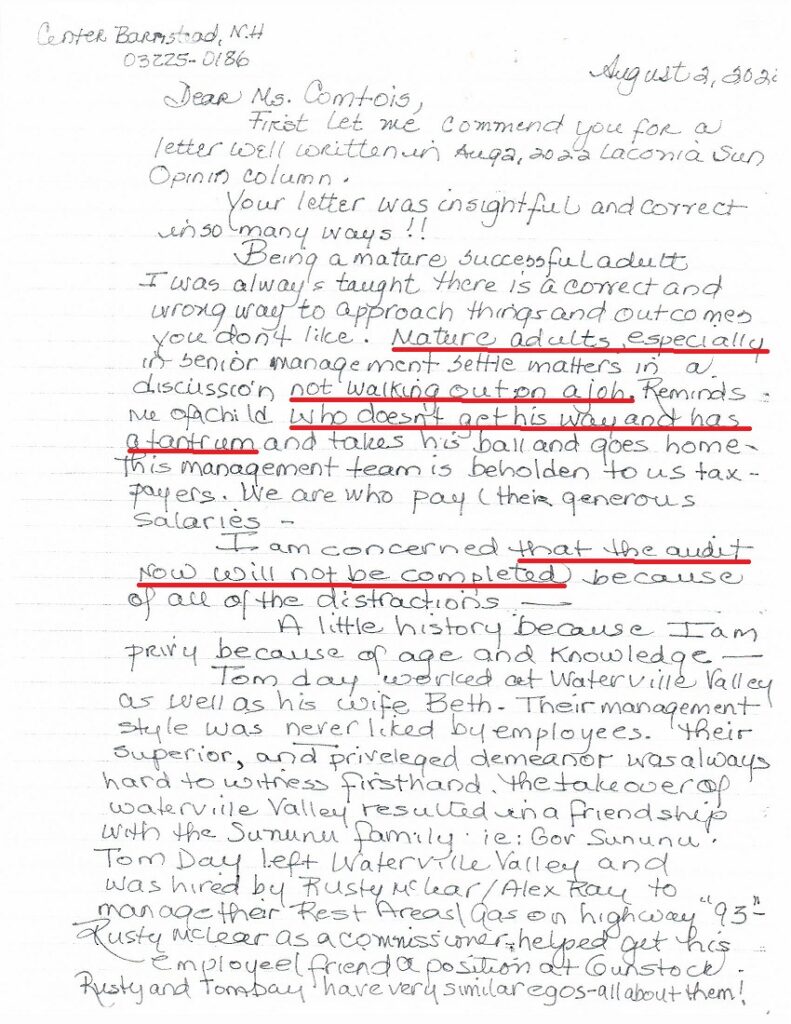 Center Barnstead, N.H
03225-0186
August 2, 202
Dear Ms. Comtois,
First let me commend you for a
letter well written in Aug 2, 2022 Laconia Sun
Opinin column.
Your letter was insightful and correct
in so many ways !!
Being a mature, successful adult
I was always taught there is a correct and
wrong way to approach things and outcomes
you don't like. Mature adults, especially
in senior management settle matters in a
discussion not walking out on a job. Reminds
me of a child who doesn't get his way and has
a tantrum and takes his ball and goes home-
this management team is beholden to us tax-
payers. We are who pay (their generous
salaries -
I am concerned that the audit
now will not be completed because
of all of the distractions —
A little history because I am
privy because of age and knowledge —
Tom day worked at Waterville Valley
as well as his wife Beth. Their management
style was never liked by employees. Their
superior, and priveleged demeanor was always
hard to witness firsthand. The takeover of
Waterville Valley resulted in a friendship
with the Sununu family. ie: Gov Sununu.
Tom Day left Waterville Valley and
was hired by Rusty McLear/Alex Ray to
manage their Rest Areas/Gas on highway "93"-
Rusty McLear as a commissioner, helped get his
employee/friend a position at Gunstock.
Rusty and Tom Day have very similar egos-all about them!